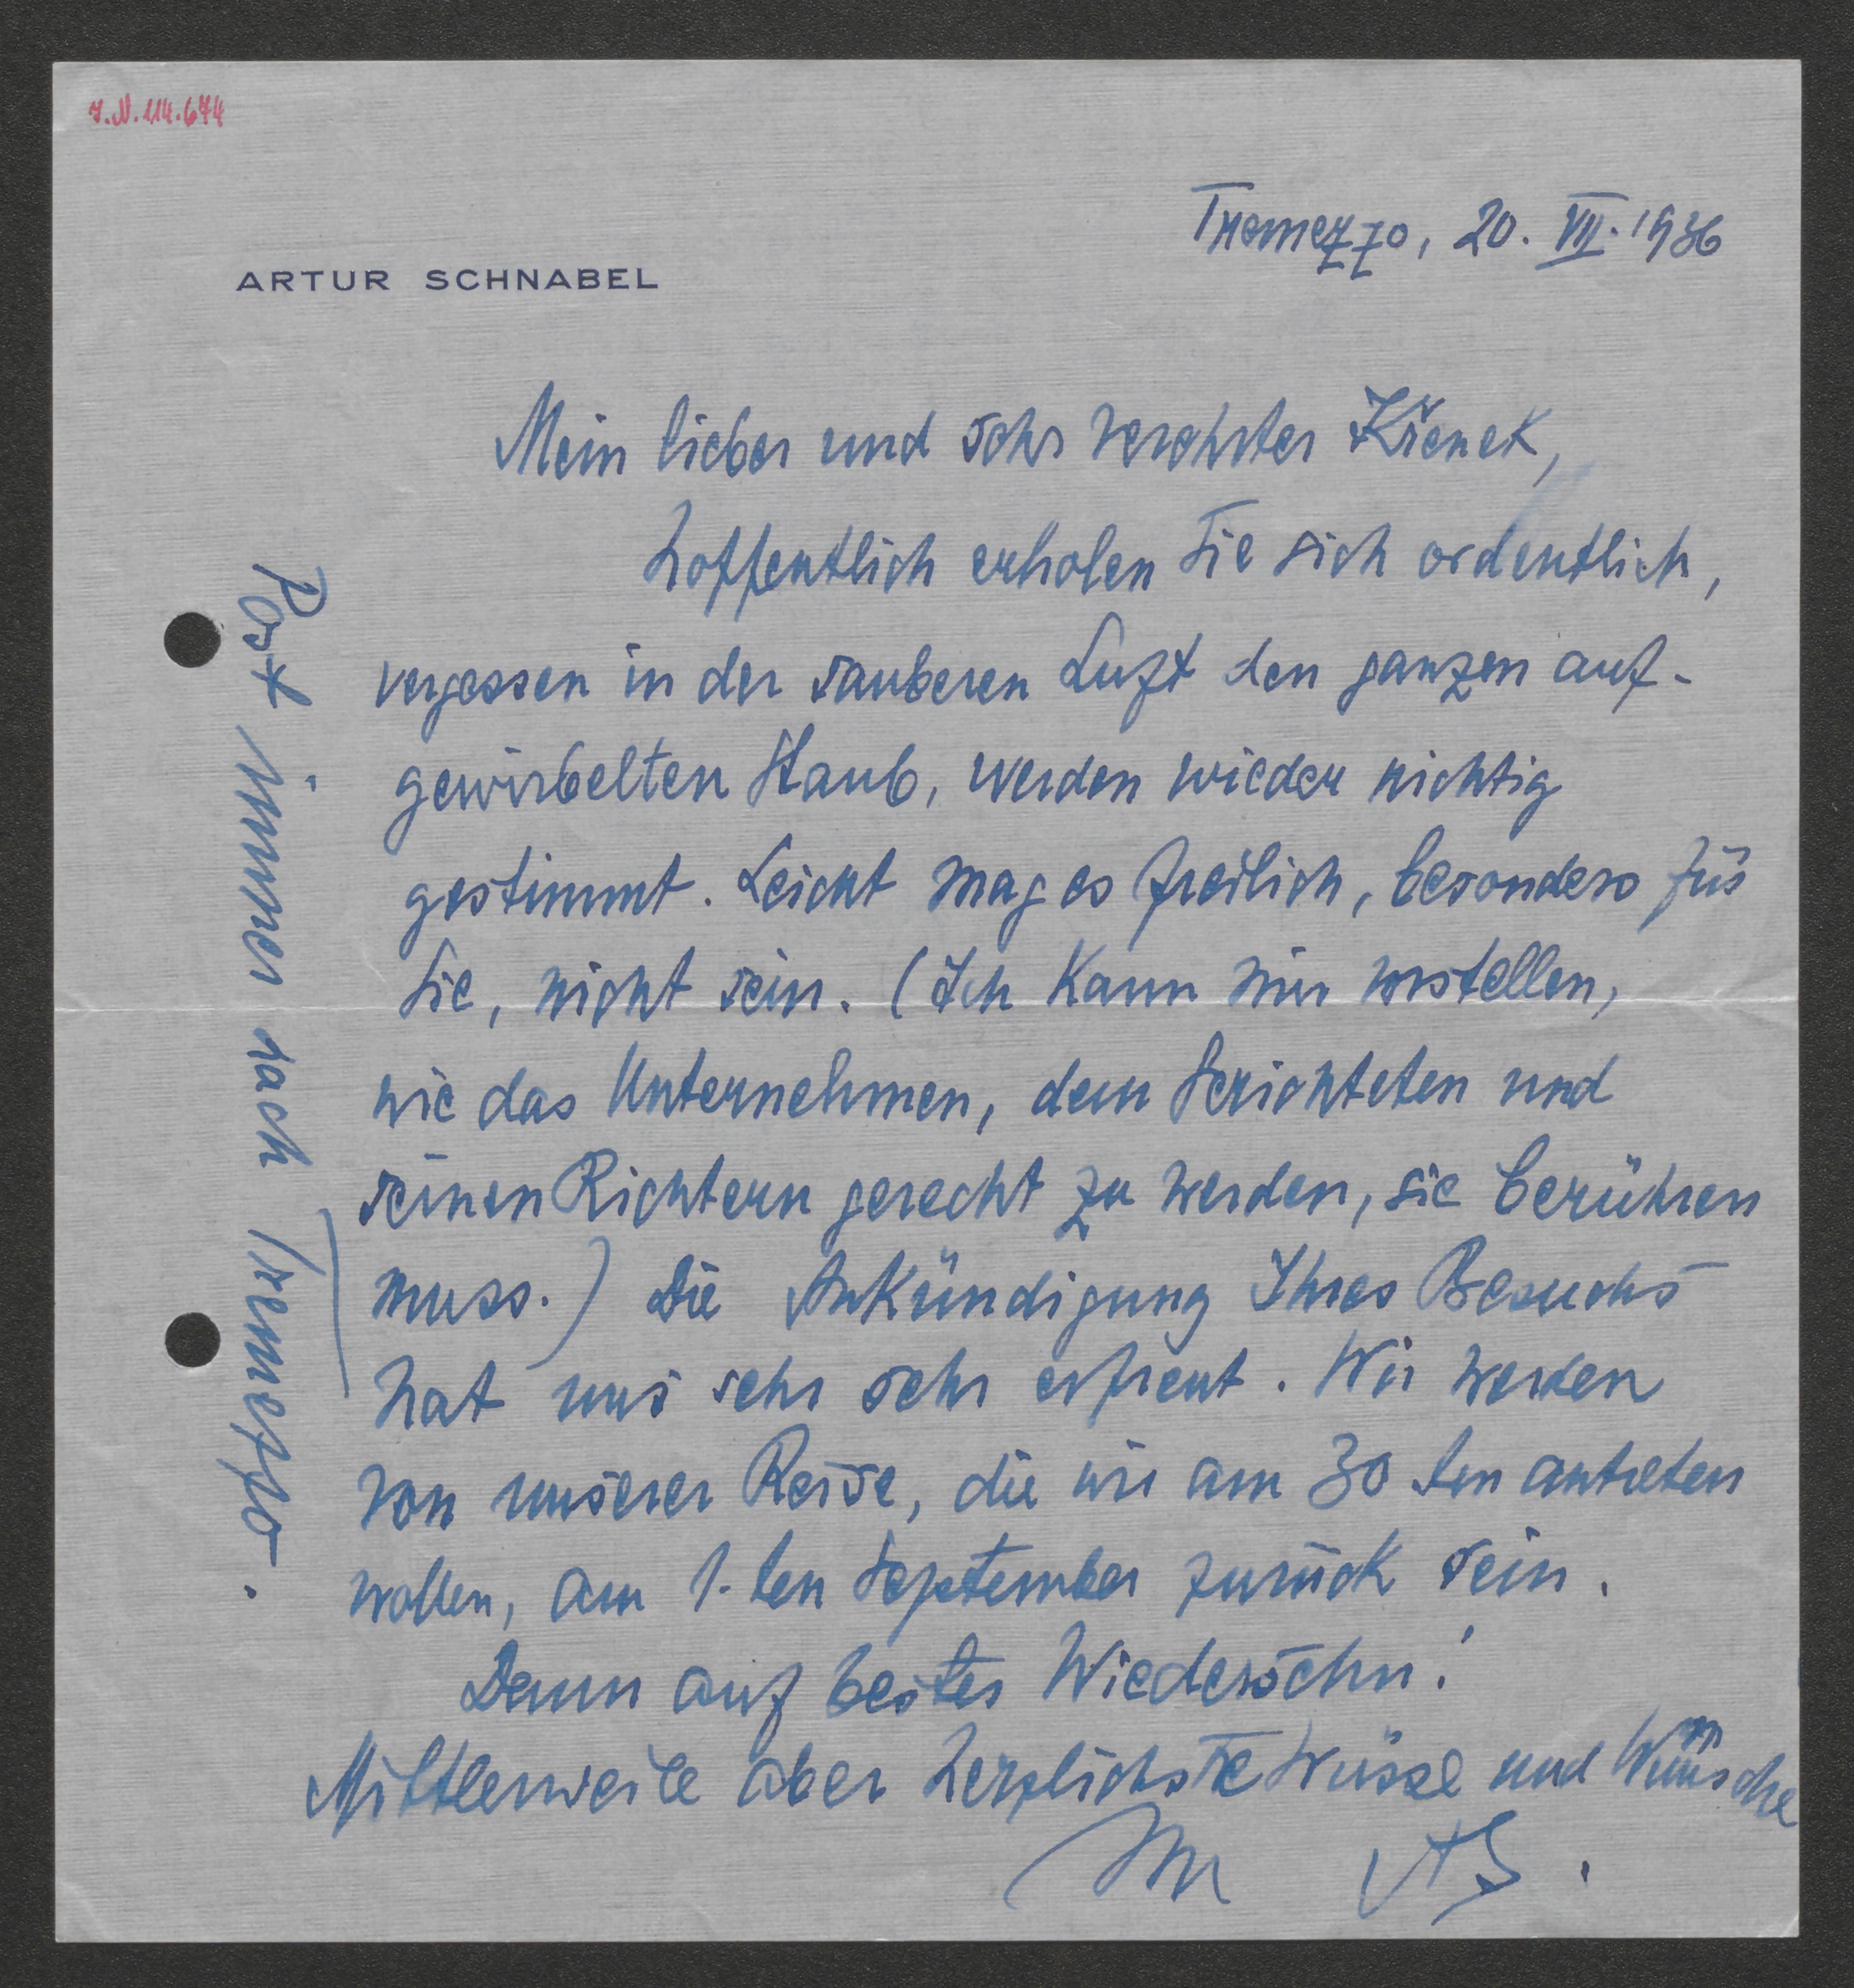 I.N. 114.674
Tremezzo, 20. VII. 1936
ARTUR SCHNABEL
Mein lieber und sehr verehrter Křenek,
hoffentlich erholen Sie sich ordentlich,
vergessen in der sauberen Luft den ganzen auf-
gewirbelten Staub, werden wieder richtig
gestimmt. Leicht mag es freilich, besonders für
Sie, nicht sein. (Ich kann mir vorstellen,
wie das Unternehmen, dem Gerichteten und
seinen Richtern gerecht zu werden, sie berühren
muss.) Die Ankündigung Ihres Besuchs
hat uns sehr sehr erfreut. Wir werden
von unserer Reise, die wir am 30 ten antreten
wollen, am 1. ten September zurück sein.
Denn auf bestes Wiedersehn!
Mittlerweile aber herzlichste Grüsse und Wünsche
Ihr AS.
Post immer nach Tremezzo.